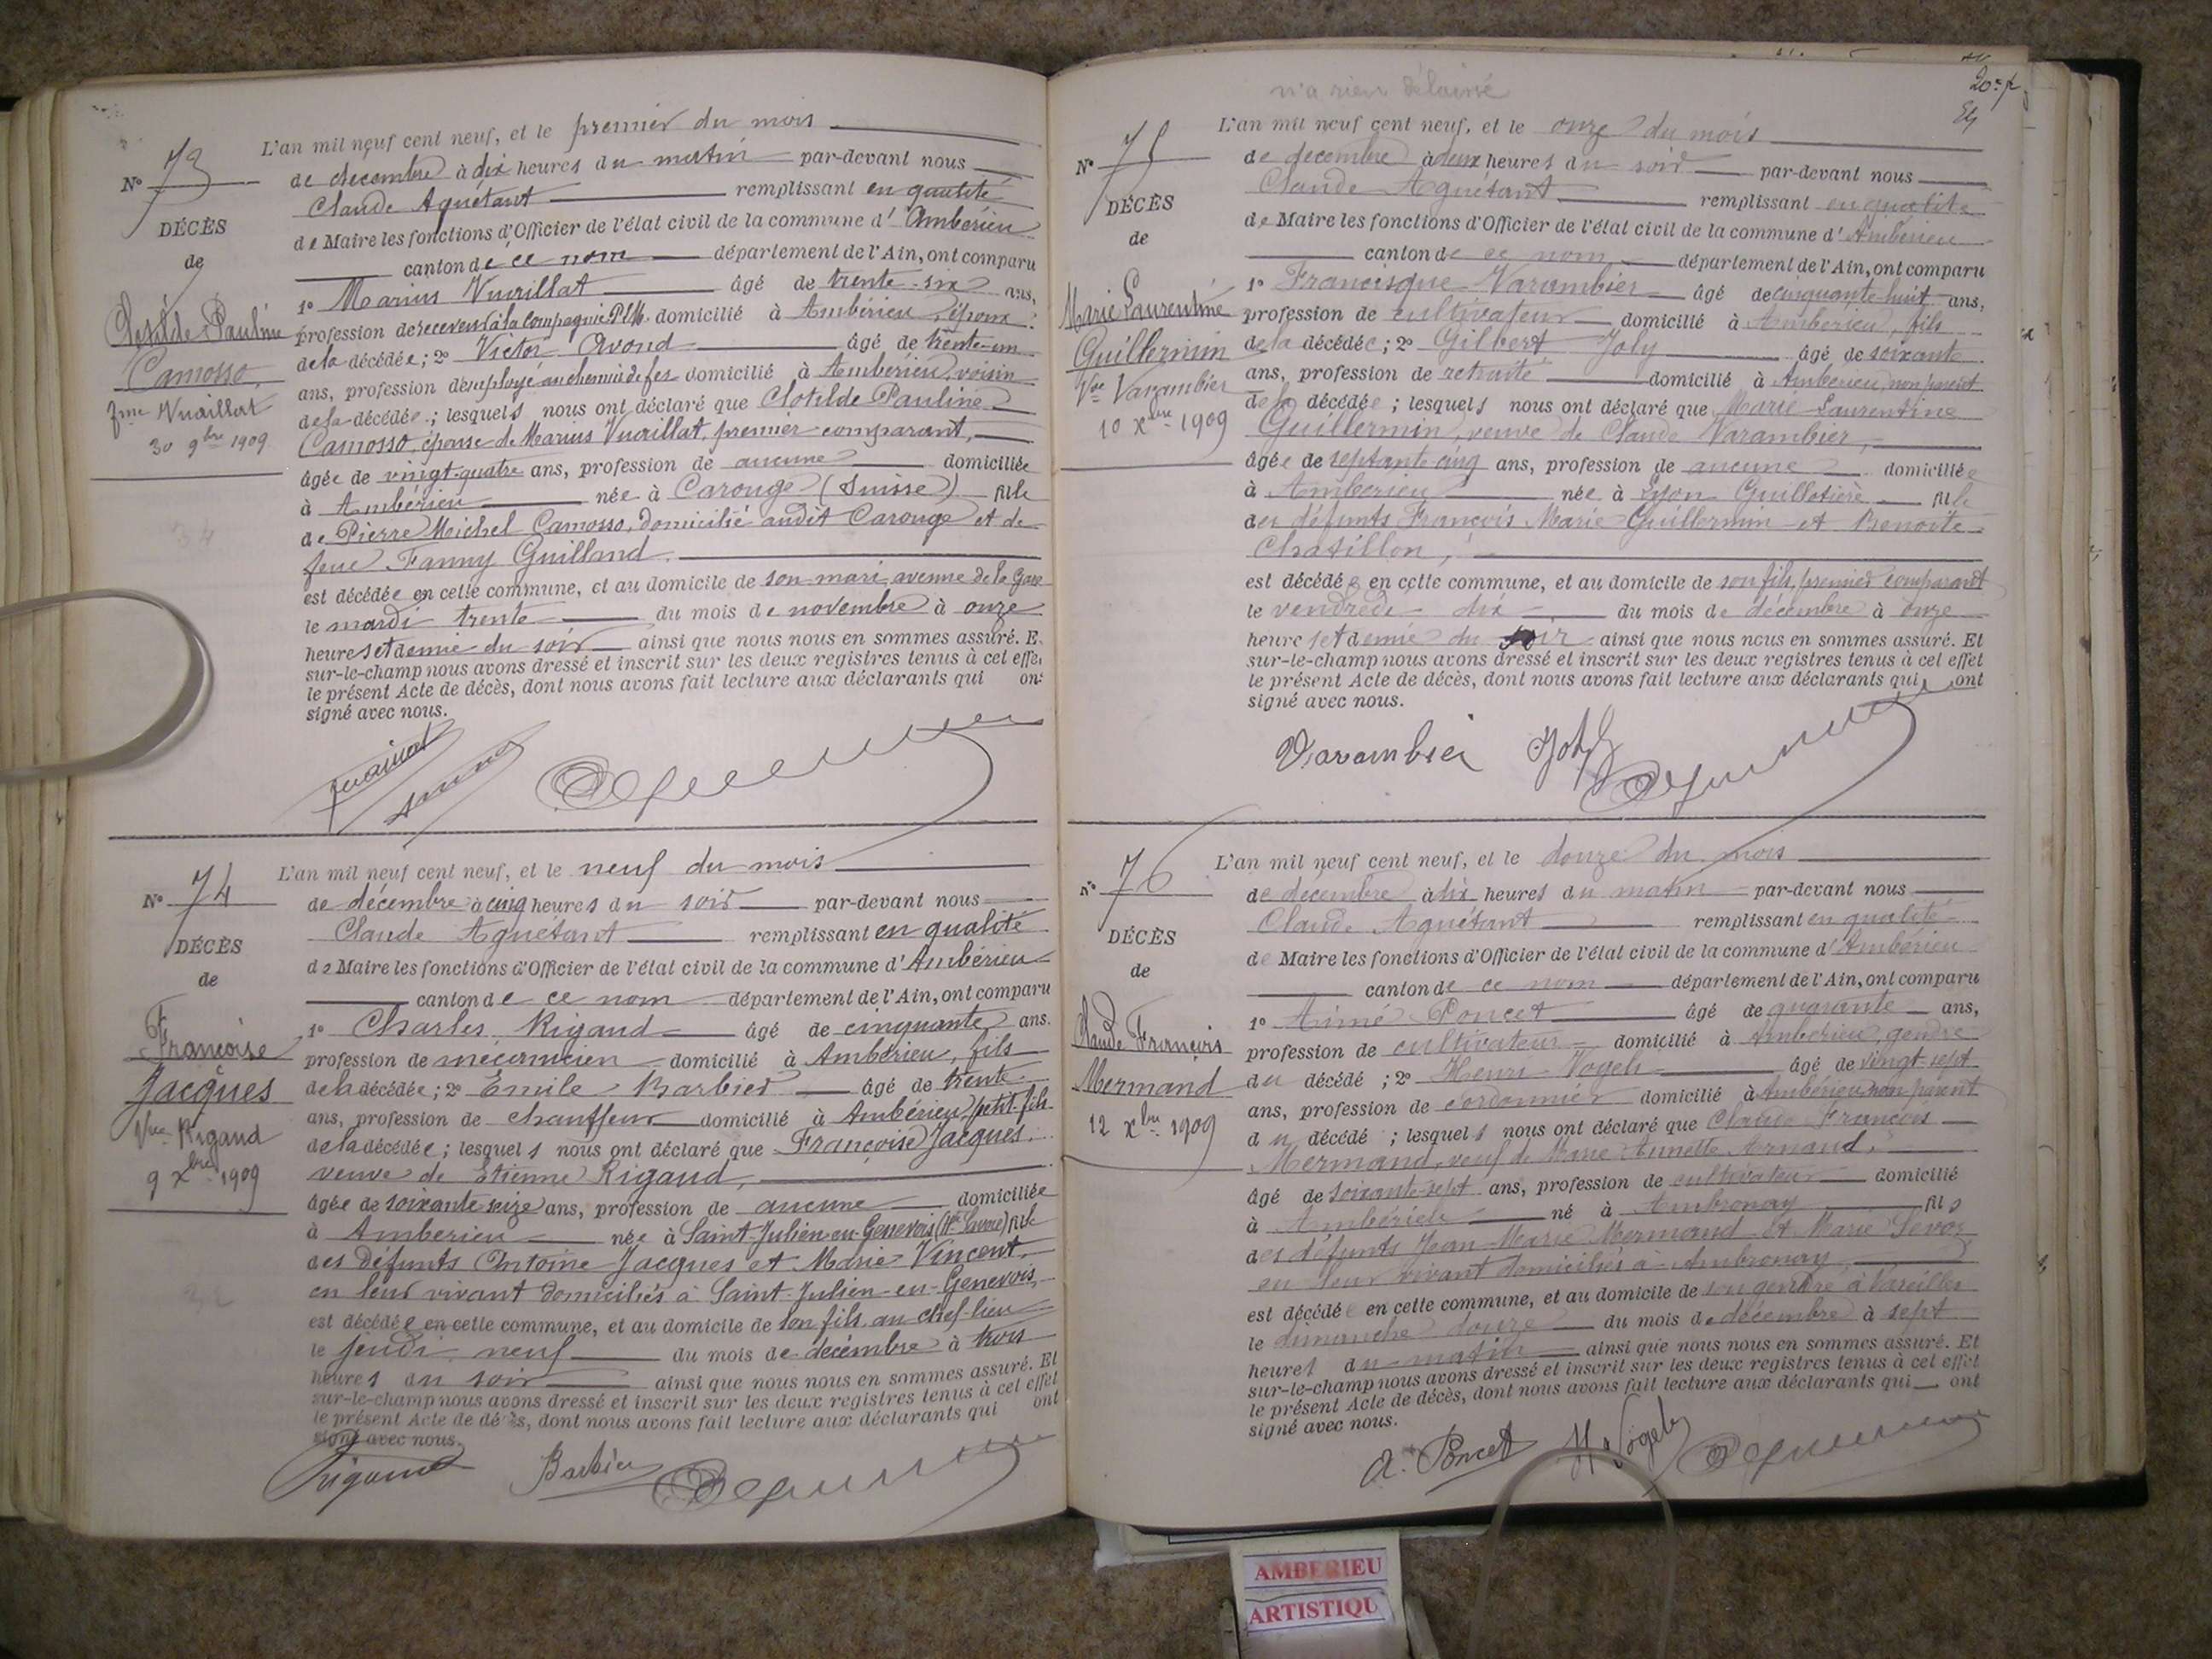 N° 73
DÉCÈS
de
Clotilde Pauline
Camosso
fme Vuaillat
30 9bre 1909
L'an mil neuf cent neuf, et le premier du mois
de decembre à dix heures du matin par-devant nous
Claude Aguétant remplissant en qualité
de Maire les fonctions d'Officier de l'état civil de la commune d'Ambérieu
canton de ce nom département de l'Ain, ont comparu
1° Marius Vuaillat âgé de trente-six ans,
profession de receveur à la Compagnie PLM domicilié à Ambérieu, époux
de la décédée; 2° Victor Avond âgé de trente-un
ans, profession d'employé au chemin de fer domicilié à Ambérieu, voisin
de la décédée; lesquels nous ont déclaré que Clotilde Pauline
Camosso, épouse de Marius Vuaillat, premier comparant,
âgée de vingt-quatre ans, profession de aucune domiciliée
à Ambérieu née à Carouge (Suisse) fille
de Pierre Michel Camosso, domicilié audit Carouge et de
feue Fanny Guilland.
est décédée en cette commune, et au domicile de son mari, avenue de la Gare
le mardi trente du mois de novembre à onze
heures et demie du soir ainsi que nous nous en sommes assuré. E
sur-le-champ nous avons dressé et inscrit sur les deux registres tenus à cet effe
le présent Acte de décès, dont nous avons fait lecture aux déclarants qui on
signé avec nous.
Vuaillat
N° 74
DÉCÈS
de
Françoise
Jacques
Vve Rigaud
9 Xbre 1909
L'an mil neuf cent neuf, et le neuf du mois
de décembre à cinq heures du soir par-devant nous
Claude Aguétant remplissant en qualité
de Maire les fonctions d'Officier de l'état civil de la commune d'Ambérieu
canton de ce nom département de l'Ain, ont comparu
1° Charles Rigaud âgé de cinquante ans.
profession de mécanicien domicilié à Ambérieu, fils
de la décédée; 2° Emile Barbier âgé de trente
ans, profession de chauffeur domicilié à Ambérieu, petit-fils
de la décédée; lesquels nous ont déclaré que Françoise Jacques,
veuve de Etienne Rigaud,
âgée de soixante seize ans, profession de aucune domiciliée
à Amberieu née à Saint-Julien-en-Genevois (Hte Savoie) fille
des défunts Antoine Jacques et Marie Vincent,
en leur vivant domiciliés à Saint-Julien-en-Genevois,
est décédée en cette commune, et au domicile de son fils, au chef-lieu
le jeudi neuf du mois de décembre à trois
heures du soir ainsi que nous nous en sommes assuré. Et
sur-le-champ nous avons dressé et inscrit sur les deux registres tenus à cet effet
le présent Acte de décès, dont nous avons fait lecture aux déclarants qui ont
signé avec nous.
Rigaud Barbier
n'a rien délaissé
N° 75
DÉCÈS
de
Marie Laurentine
Guillermin
Vve Varambier
10 Xbre 1909
L'an mil neuf cent neuf, et le onze du mois
de decembre à deux heures du soir par-devant nous
Claude Aguétant remplissant en qualité
de Maire les fonctions d'Officier de l'état civil de la commune d'Ambérieu
canton de ce nom département de l'Ain, ont comparu
1° Francisque Varambier âgé de cinquante-huit ans,
profession de cultivateur domicilié à Ambérieu, fils
de la décédée; 2° Gilbert Joly âgé de soixante
ans, profession de retraité domicilié à Ambérieu, non parent
de la décédée; lesquels nous ont déclaré que Marie Laurentine
Guillermin, veuve de Claude Varambier,
âgée de septante cinq ans, profession de aucune domiciliée
à Amberieu née à Lyon Guillotière fille
des défunts François Marie Guillermin et Benoite
Chatillon,
est décédée en cette commune, et au domicile de son fils, premier comparant
le vendredi dix du mois de décembre à onze
heures et demie du soir ainsi que nous nous en sommes assuré. Et
sur-le-champ nous avons dressé et inscrit sur les deux registres tenus à cet effet
le présent Acte de décès, dont nous avons fait lecture aux déclarants qui ont
signé avec nous.
Varambier Joly
N° 76
DÉCÈS
de
Claude François
Mermand
12 Xbre 1909
L'an mil neuf cent neuf, et le douze du mois
de décembre à dix heures du matin par-devant nous
Claude Aguétant remplissant en qualité
de Maire les fonctions d'Officier de l'état civil de la commune d'Ambérieu
canton de ce nom département de l'Ain, ont comparu
1° Aimé Poncet âgé de quarante ans,
profession de cultivateur domicilié à Ambérieu, gendre
du décédé; 2° Henri Vogeli âgé de vingt-sept
ans, profession de cordonnier domicilié à Ambérieu, non parent
du décédé; lesquels nous ont déclaré que Claude François
Mermand, veuf de Marie Annette Arnaud,
âgé de soixante-sept ans, profession de cultivateur domicilié
à Ambérieu né à Ambronay fils
des défunts Jean-Marie Mermand et Marie
en leur vivant domiciliés à Ambronay
est décédé en cette commune, et au domicile de son gendre à Vareilles
le dimanche douze du mois de décembre à sept
heures du matin ainsi que nous nous en sommes assuré. Et
sur-le-champ nous avons dressé et inscrit sur les deux registres tenus à cet effet
le présent Acte de décès, dont nous avons fait lecture aux déclarants qui ont
signé avec nous.
A. Poncet H. Vogeli
AMBERIEU
ARTISTIQU